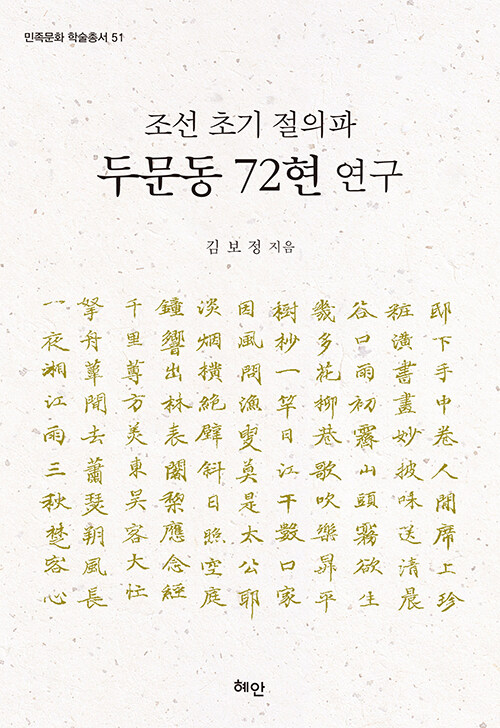 민족문화 학술총서 51
조선 초기 절의파
두문동 72현 연구
김보정 지음
邸下手中卷人間席上珍
粧潢書畫妙披味送清晨
谷口雨初霽山頭霧欲生
幾多花柳巷歌吹樂昇平
樹杪一竿日江干數口家
因風問漁叟莫是太公耶
淡烟橫絕壁斜日照空庭
鐘響出林表闍黎應念經
千里蓴方美東吳客大忙
拏舟葦間去蕭瑟朔風長
一夜湘江雨三秋楚客心
혜안